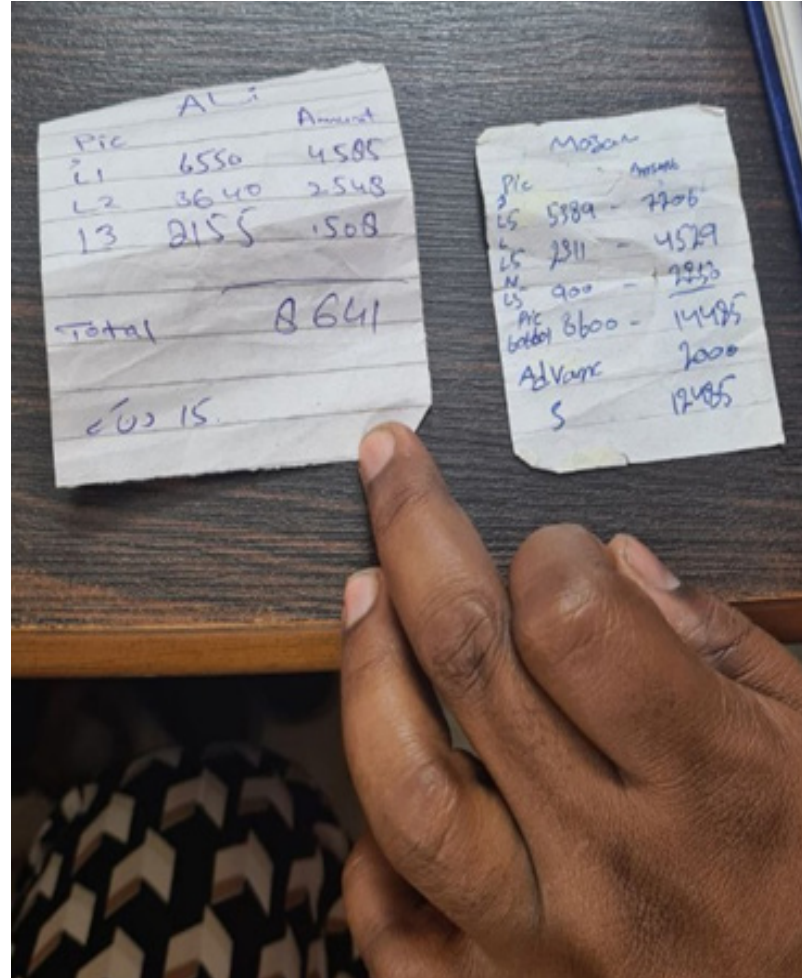 ALi
Pic Amount
L1 6550 4585
L2 3640 2548
L3 2155 1508
Total 8641
15 دن کے
Mosan
Pic Amount
L5 5389 - 7206
L5 2311 - 4529
L5 900 - 2750
Pic 8600 - 14485
Advanc 2000
S 12485